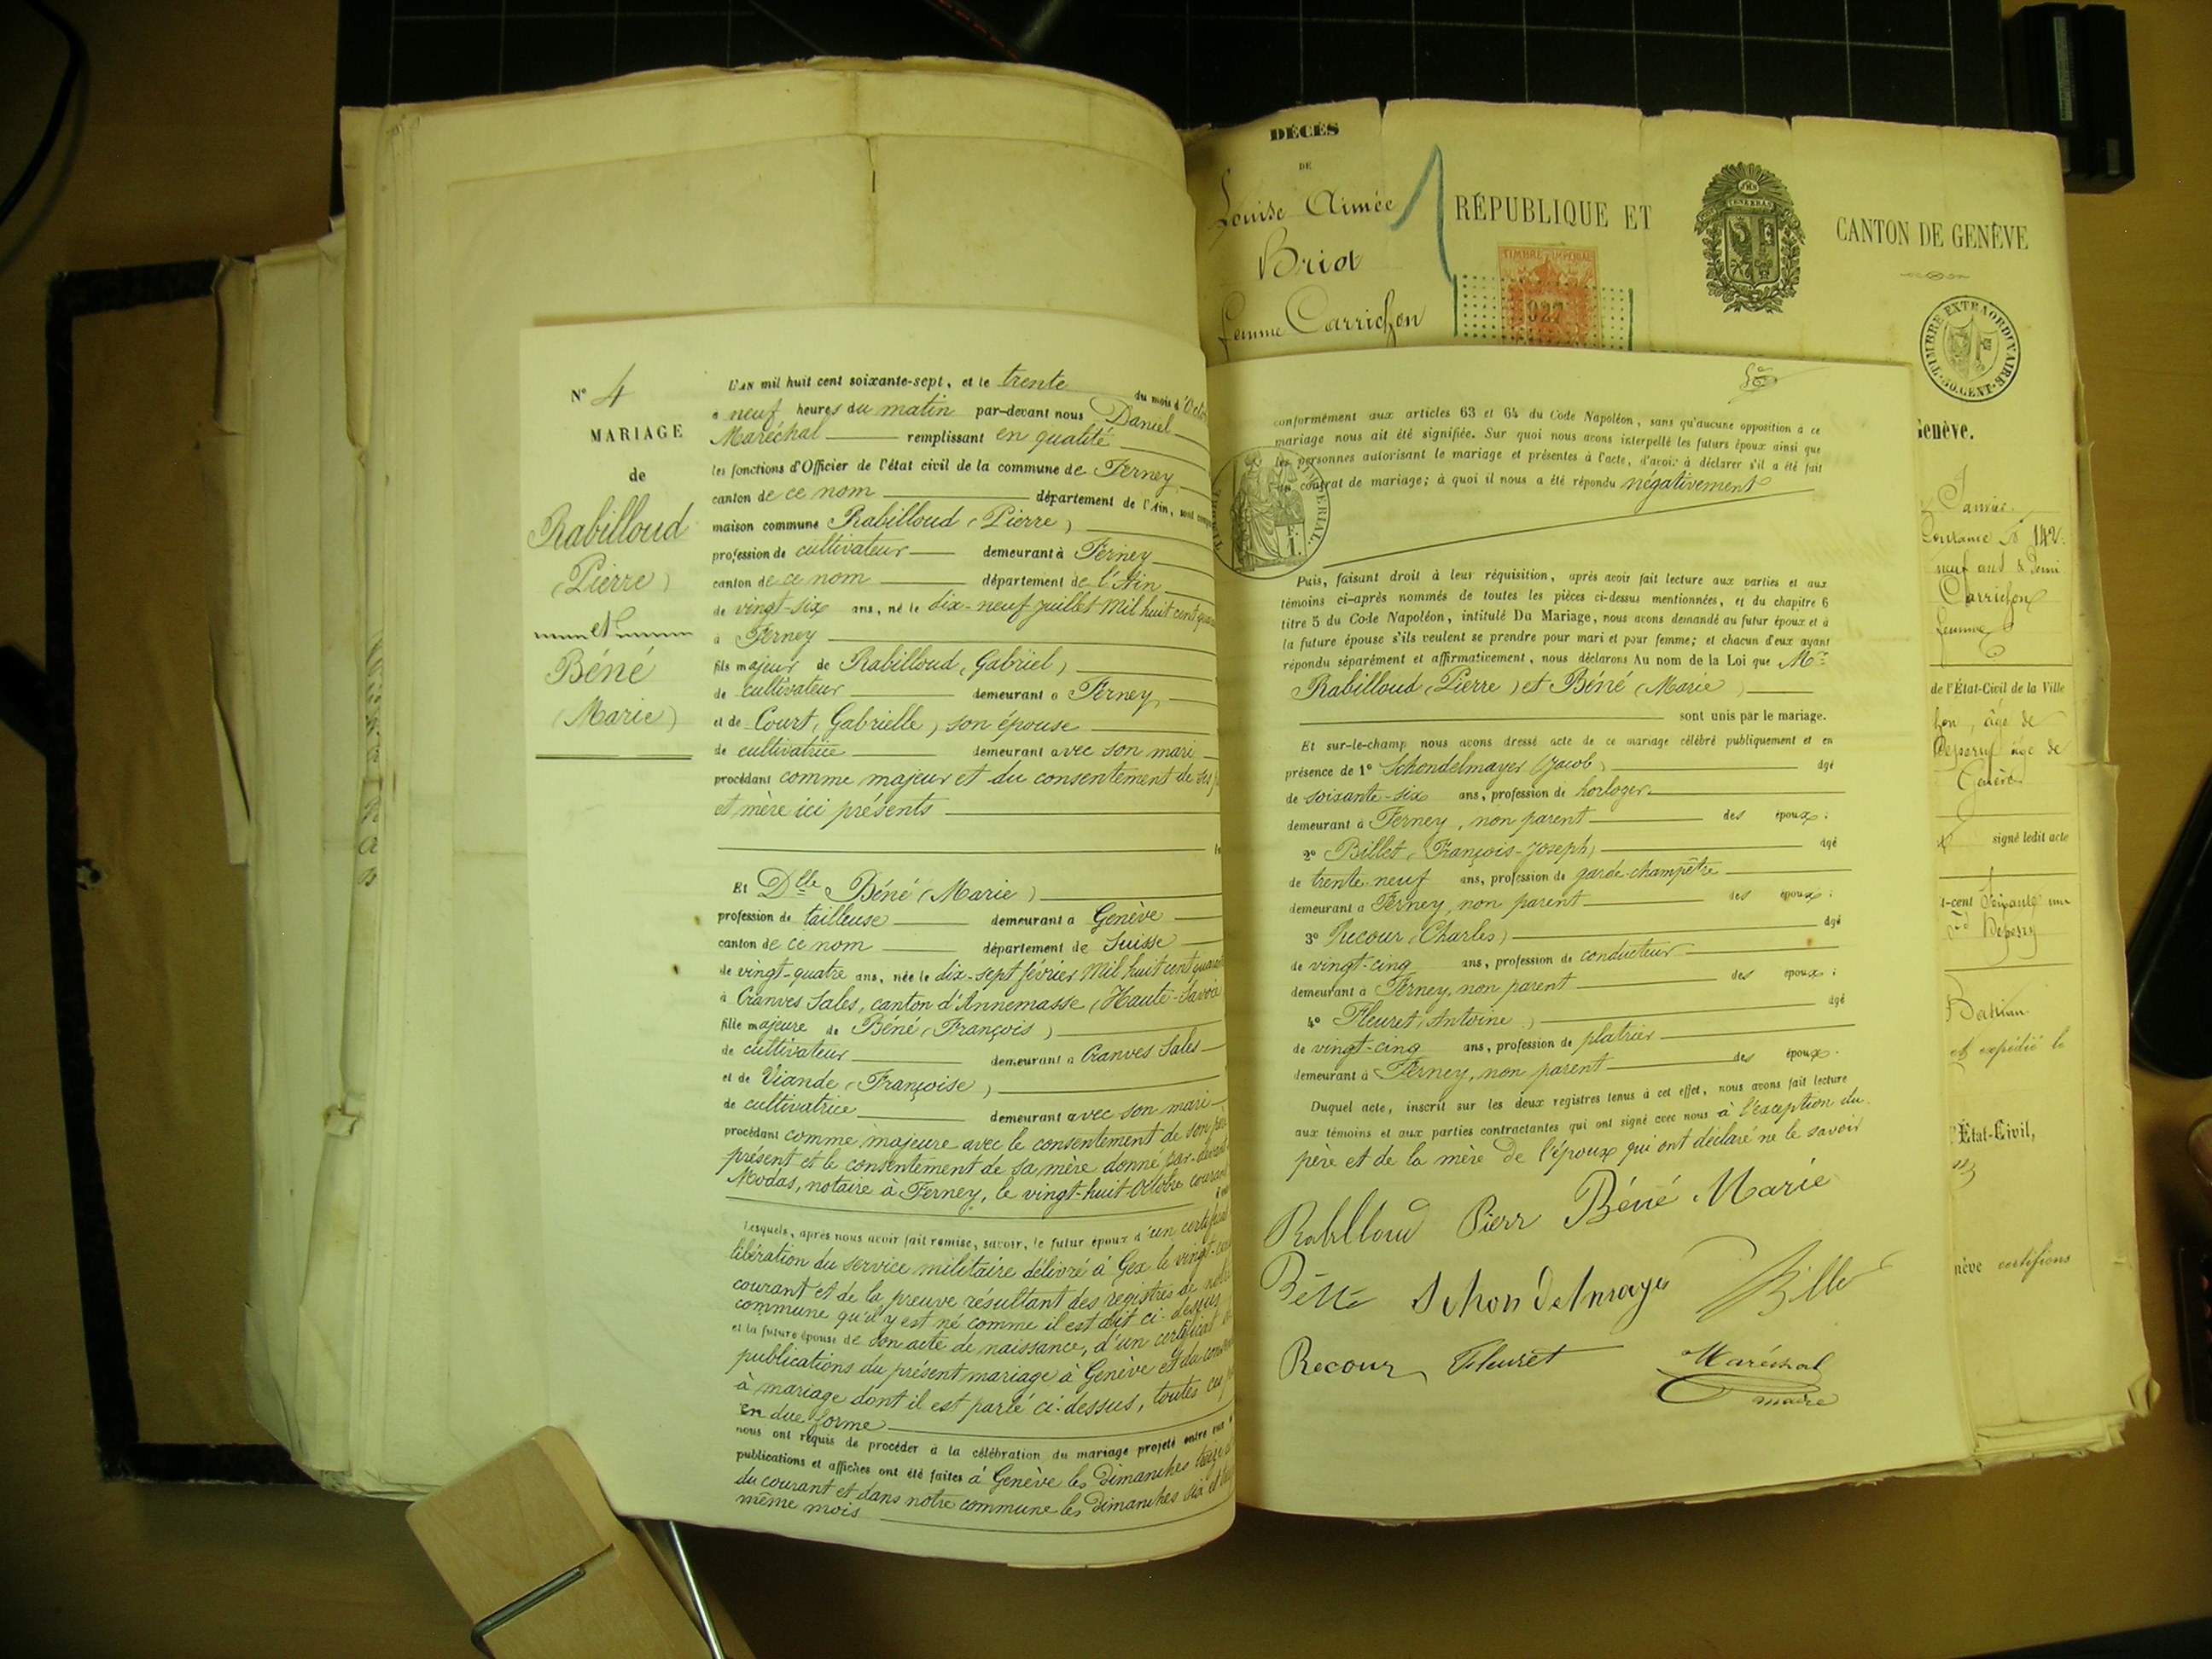 N° 4
MARIAGE
de
Rabilloud
(Pierre)
et
Béné
(Marie)
L'AN mil huit cent soixante-sept, et le trente du mois d'Octo
à neuf heures du matin par-devant nous Daniel
Maréchal remplissant en qualité
les fonctions d'Officier de l'état civil de la commune de Ferney
canton de ce nom département de l'Ain, sont
maison commune Rabilloud (Pierre)
profession de cultivateur demeurant à Ferney
canton de ce nom département de l'Ain
de vingt-six ans, né le dix-neuf juillet Mil huit cent
à Ferney
fils majeur de Rabilloud (Gabriel)
de cultivateur demeurant à Ferney
et de Court (Gabrielle) son épouse
de cultivatrice demeurant avec son mari
procédant comme majeur et du consentement de ses
et mère ici présents
Et Dlle Béné (Marie)
profession de tailleuse demeurant à Genève
canton de ce nom département de Suisse
de vingt-quatre ans, née le dix-sept février Mil huit cent
à Cranves Sales, canton d'Annemasse (Haute-Savoie
fille majeure de Béné (François)
de cultivateur demeurant à Cranves Sales
et de Viande (Françoise)
de cultivatrice demeurant avec son mari
procédant comme majeure avec le consentement de son
présent et le consentement de sa mère donné par-devant
Modas, notaire à Ferney, le vingt-huit Octobre courant
Lesquels, après nous avoir fait remise, savoir, le futur époux d'un certificat
libération du service militaire délivré à Gex le vingt-
courant et de la preuve résultant des registres de notre
commune qu'il y est né comme il est dit ci-dessus
et la future épouse de son acte de naissance, d'un certificat
publications du présent mariage à Genève et du
à mariage dont il est parlé ci-dessus, toutes ces
en due forme
nous ont requis de procéder à la célébration du mariage projeté entre eux
publications et affiches ont été faites à Genève les Dimanches
du courant et dans notre commune les Dimanches six et
même mois
DÉCÈS
DE
Louise Aimée
Briot
femme Carrichon
1
RÉPUBLIQUE ET CANTON DE GENÈVE
TIMBRE IMPÉRIAL
927
TIMBRE EXTRAORDINAIRE
50. CENT.
conformément aux articles 63 et 64 du Code Napoléon, sans qu'aucune opposition à ce
mariage nous ait été signifiée. Sur quoi nous avons interpellé les futurs époux ainsi que
les personnes autorisant le mariage et présentes à l'acte, d'avoir à déclarer s'il a été fait
un contrat de mariage; à quoi il nous a été répondu négativement
TIMBRE IMPÉRIAL
Puis, faisant droit à leur réquisition, après avoir fait lecture aux parties et aux
témoins ci-après nommés de toutes les pièces ci-dessus mentionnées, et du chapitre 6
titre 5 du Code Napoléon, intitulé Du Mariage, nous avons demandé au futur époux et à
la future épouse s'ils veulent se prendre pour mari et pour femme; et chacun d'eux ayant
répondu séparément et affirmativement, nous déclarons Au nom de la Loi que Mr
Rabilloud (Pierre) et Béné (Marie)
sont unis par le mariage.
Et sur-le-champ nous avons dressé acte de ce mariage célébré publiquement et en
présence de 1° Schondelmayer (Jacob) âgé
de soixante-six ans, profession de horloger
demeurant à Ferney, non parent des époux;
2° Billet (François-Joseph) âgé
de trente-neuf ans, profession de garde-champêtre
demeurant à Ferney, non parent des époux;
3° Recour (Charles) âgé
de vingt-cinq ans, profession de conducteur
demeurant à Ferney, non parent des époux;
4° Fleuret (Antoine) âgé
de vingt-cinq ans, profession de platrier
demeurant à Ferney, non parent des époux.
Duquel acte, inscrit sur les deux registres tenus à cet effet, nous avons fait lecture
aux témoins et aux parties contractantes qui ont signé avec nous à l'exception du
père et de la mère de l'époux qui ont déclaré ne le savoir
Rabilloud Pierr Béné Marie
Béné Schondelmayer Billet
Recour Fleuret Maréchal
maire
Genève.
142
neuf ans & demi
Carrichon
femme
de l'État-Civil de la Ville
hon, âgé de
âgé de
Genève
signé ledit acte
t-cent soixante un
et expédié le
l'État-Civil,
nève certifions